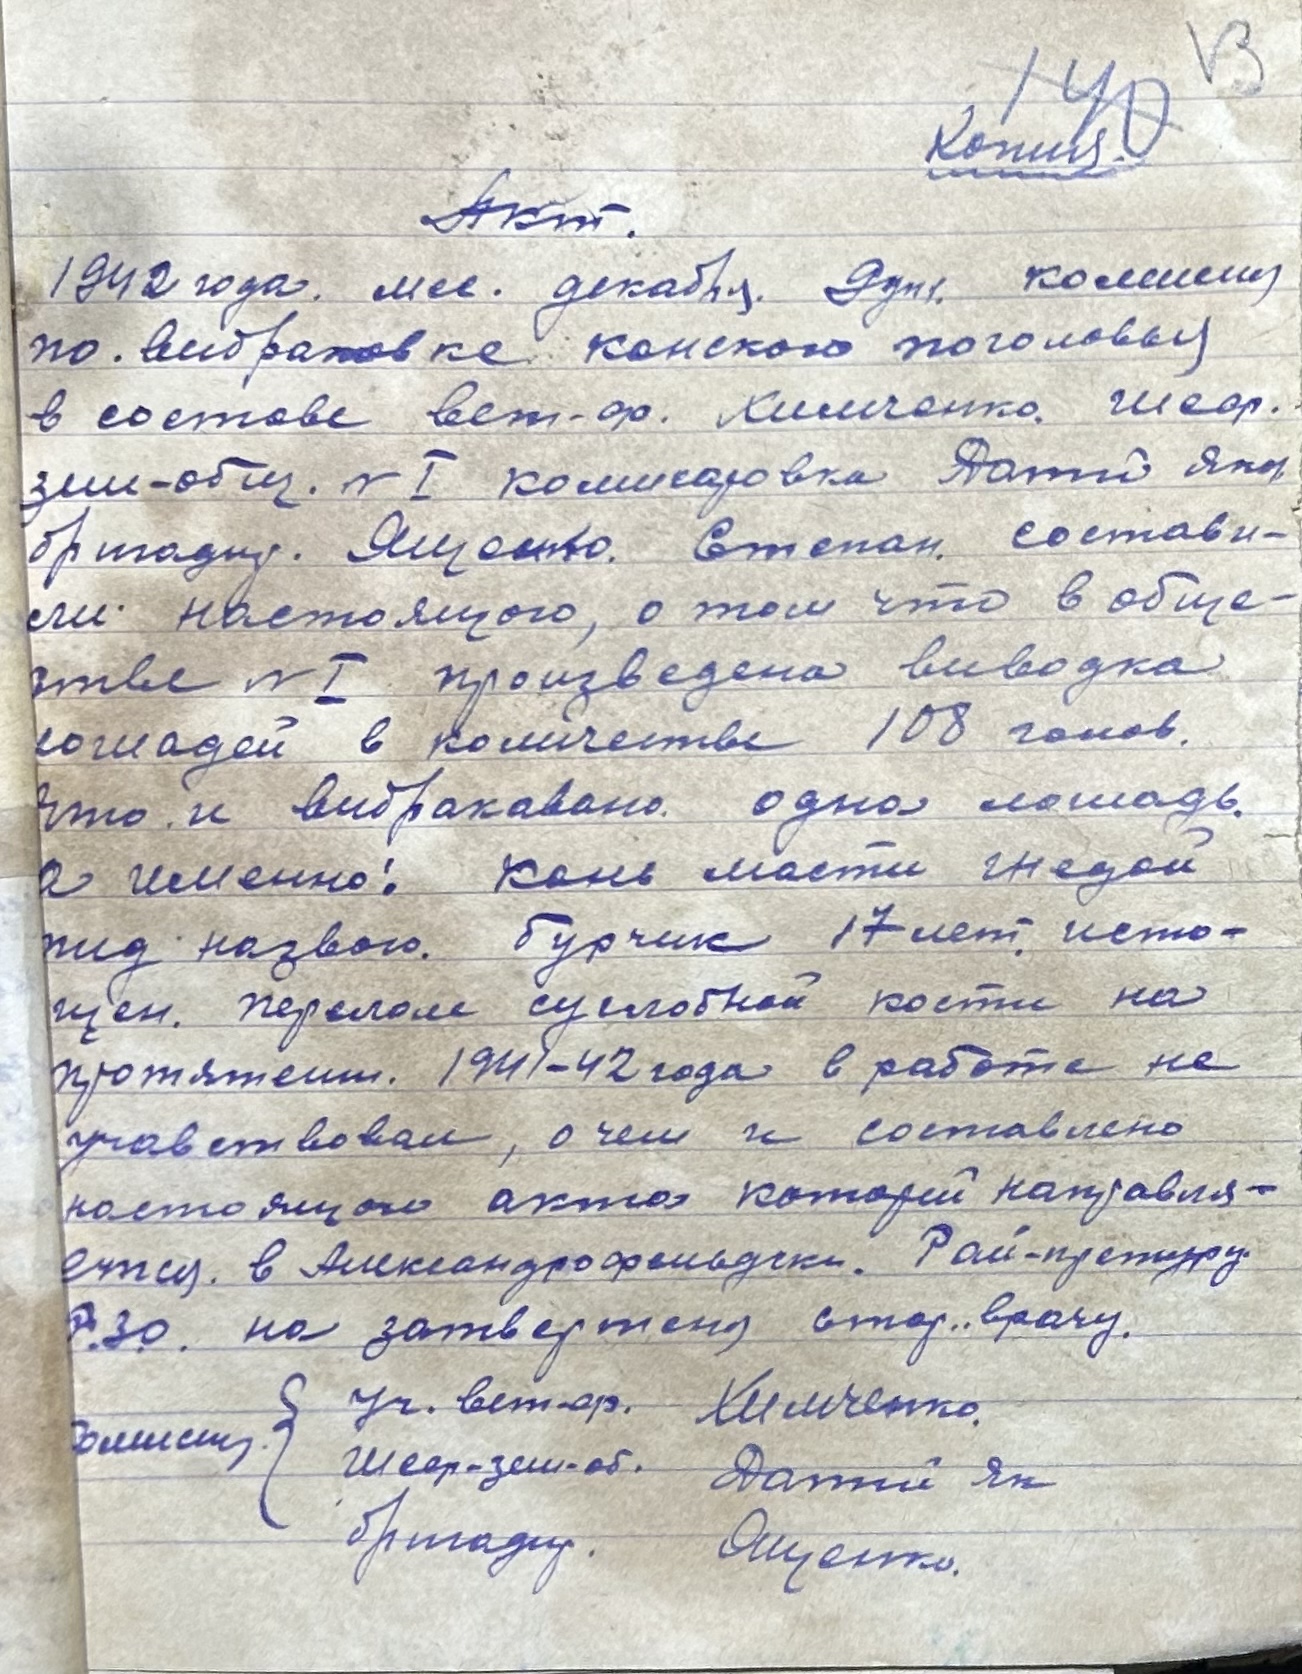 13
140
Копия.
Акт.
1942 года. мес. декабря. 9 дня. комисия
по. выбраковке конского поголовья
в составе вет-ф. Химченко. шеф.
зем-общ. №I комисаровка Датий Яков
бригадир. Ященко. Степан. состави-
ли настоящого, о том что в обще-
стве №I произведена виводка
лошадей в количестве 108 голов.
что и вибракавано. одна лошадь.
а именно: Конь масти гнедой
под назвою. Бурчик 17 лет, исто-
щен. перелом суслобной кости на
протяжении. 1941-42 года в работе не
учавствовал, о чем и составлено
настоящого акта который направля-
ется. в Александрофельдски. Рай-
Р.З.О. на затвержения стар. врачу.
Комисия. Уч. вет-ф. Химченко.
Шеф-зем-об. Датий Як
бригадир. Ященко.